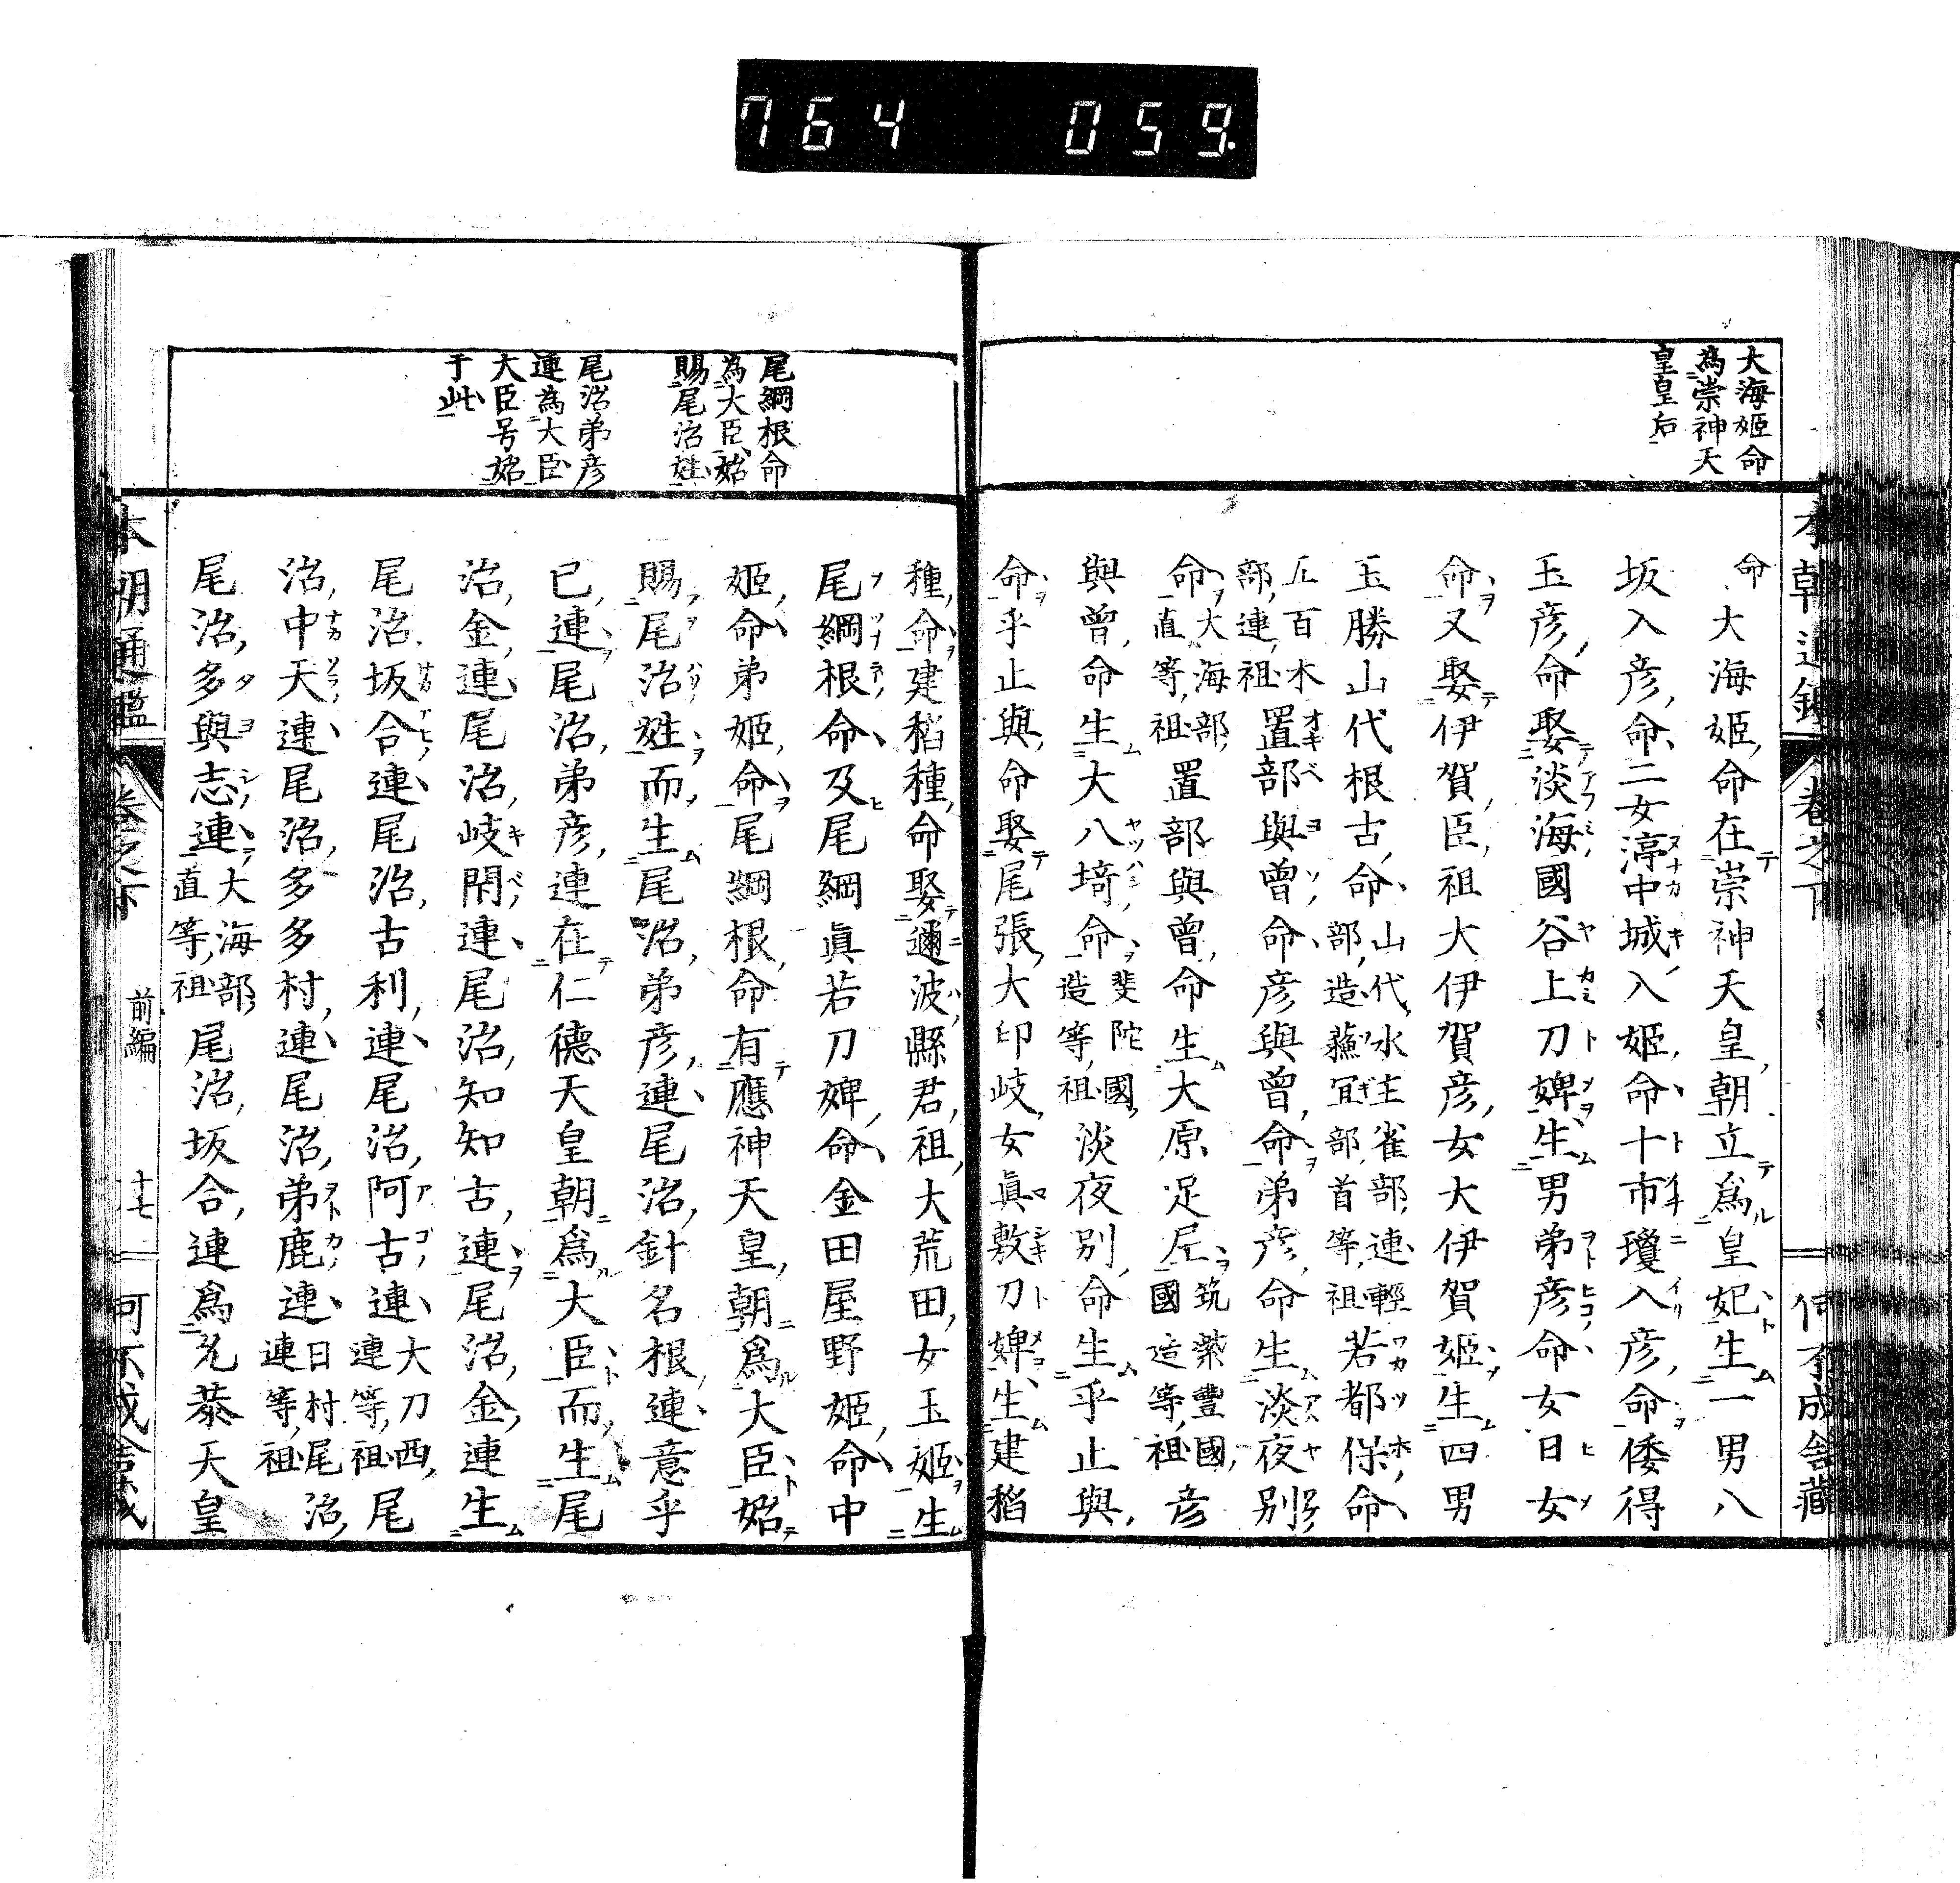 764 059.
大海姬命
為崇神天
皇皇后
命大海姬命在崇神天皇朝立爲皇妃生一男八
坂入彦命二女渟中城入姬命十市瓊入彦命倭得
玉彦命娶淡海國谷上刀婢生男弟彦命女日女
命又娶伊賀臣祖大伊賀彦女大伊賀姬生四男
玉勝山代根古命山代水主雀部連輕
部造蘓冝部首等祖若都保命
五百木
部連祖置部與曾命彦與曾命弟彦命生淡夜別
命大海部
直等祖置部與曾命生大原足尼筑紫豐國
國造等祖彦
與曾命生大八埼命斐陀國
造等祖淡夜別命生乎止與
命乎止與命娶尾張大印岐女眞敷刀婢生建稻
尾綱根命
為大臣始
賜尾治姓
尾治弟彦
連為大臣
大臣号始
于此
種命建稻種命娶邇波縣君祖大荒田女玉姬生
尾綱根命及尾綱眞若刀婢命金田屋野姬命中
姬命弟姬命尾綱根命有應神天皇朝爲大臣始
賜尾治姓而生尾治弟彦連尾治針名根連意乎
已連尾治弟彦連在仁德天皇朝爲大臣而生尾
治金連尾治岐閇連尾治知知古連尾治金連生
尾治坂合連尾治古利連尾治阿古連大刀西
連等祖尾
治中天連尾治多多村連尾治弟鹿連日村尾治
連等祖
尾治多與志連大海部
直等祖尾治坂合連爲允恭天皇
本朝通鑑 卷之下 前編 十七